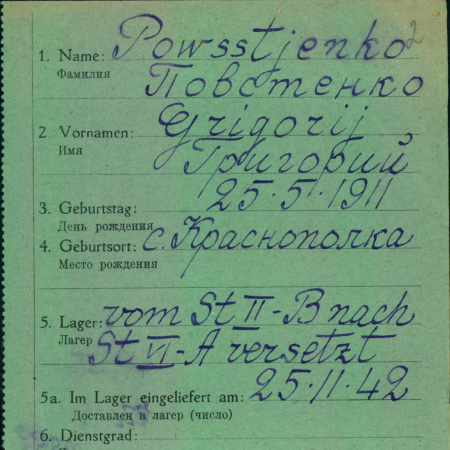 2
1. Name: Powsstjenko
Фамилия
Повстенко
2 Vornamen: Grigorij
Имя
Григорий
3. Geburtstag: 25.5.1911
День рождения
4. Geburtsort: с. Краснополка
Место рождения
5. Lager: vom St II-B nach
Лагер St VI-A versetzt
5a. Im Lager eingeliefert am: 25.11.42
Доставлен в лагер (число)
6. Dienstgrad: